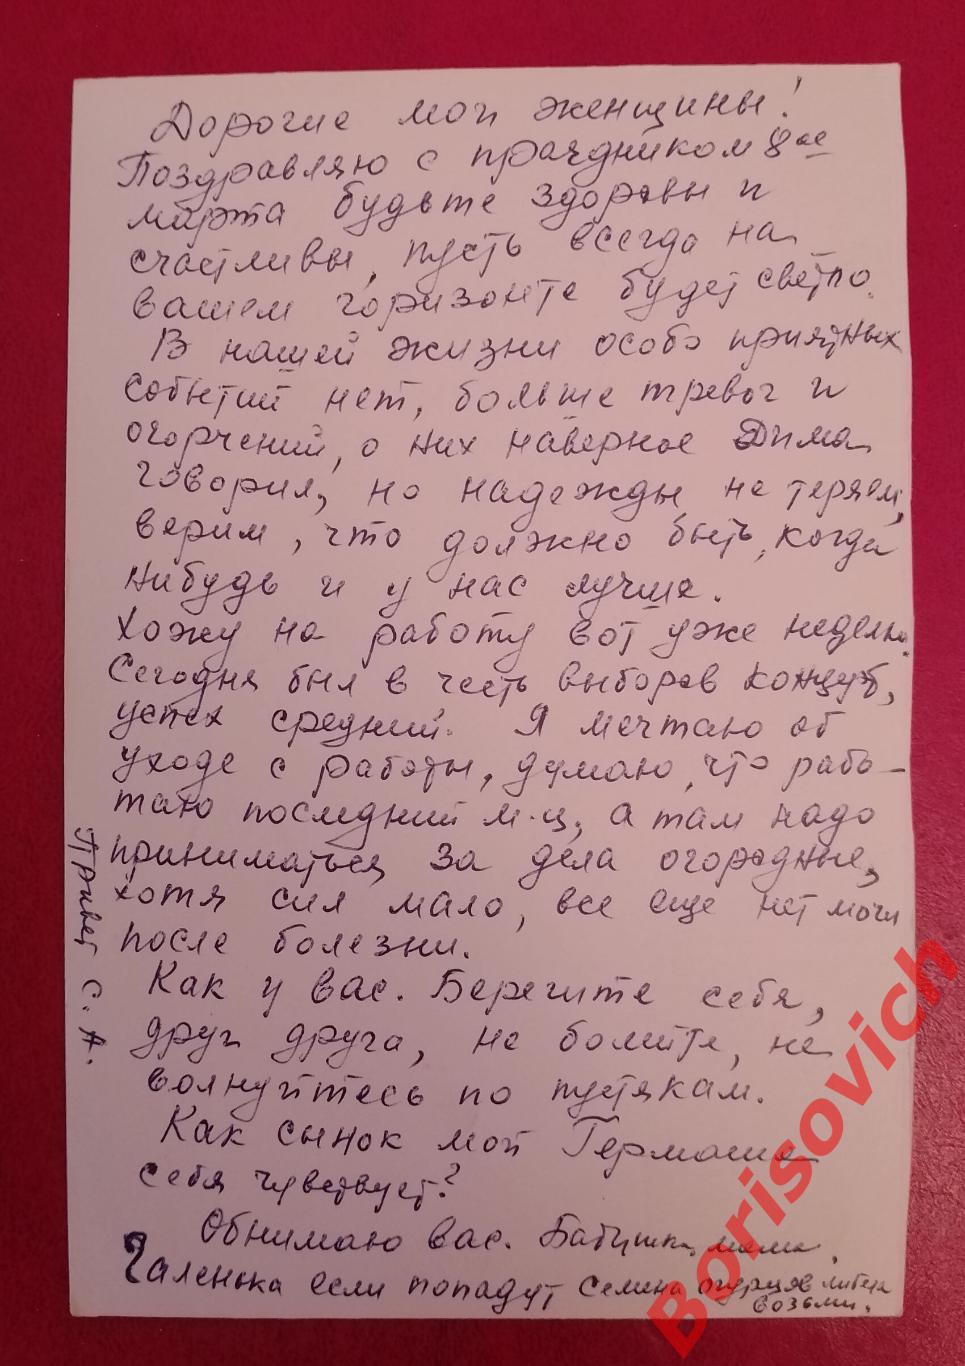 Дорогие мои женщины!
Поздравляю с праздником 8ое
марта будьте здоровы и
счастливы, пусть всегда на
вашем горизонте будет светло.
В нашей жизни особо приятных
событий нет, больше тревог и
огорчений, о них наверное Дима
говорил, но надежды не теряем,
верим, что должно быть, когда
нибудь и у нас лучше.
Хожу на работу вот уже неделю.
Сегодня был в честь выборов концерт,
успех средний. Я мечтаю об
уходе с работы, думаю, что рабо-
таю последний м-ц, а там надо
приниматься за дела огородные,
хотя сил мало, все еще нет мочи
после болезни.
Как у вас. Берегите себя,
друг друга, не болейте, не
волнуйтесь по пустякам.
Как сынок мой Гермаша
себя чувствует?
Обнимаю вас. Бабушка, мама.
Галенька если попадут семена огурцов
возьми.
Привет С. А.
Borisovich